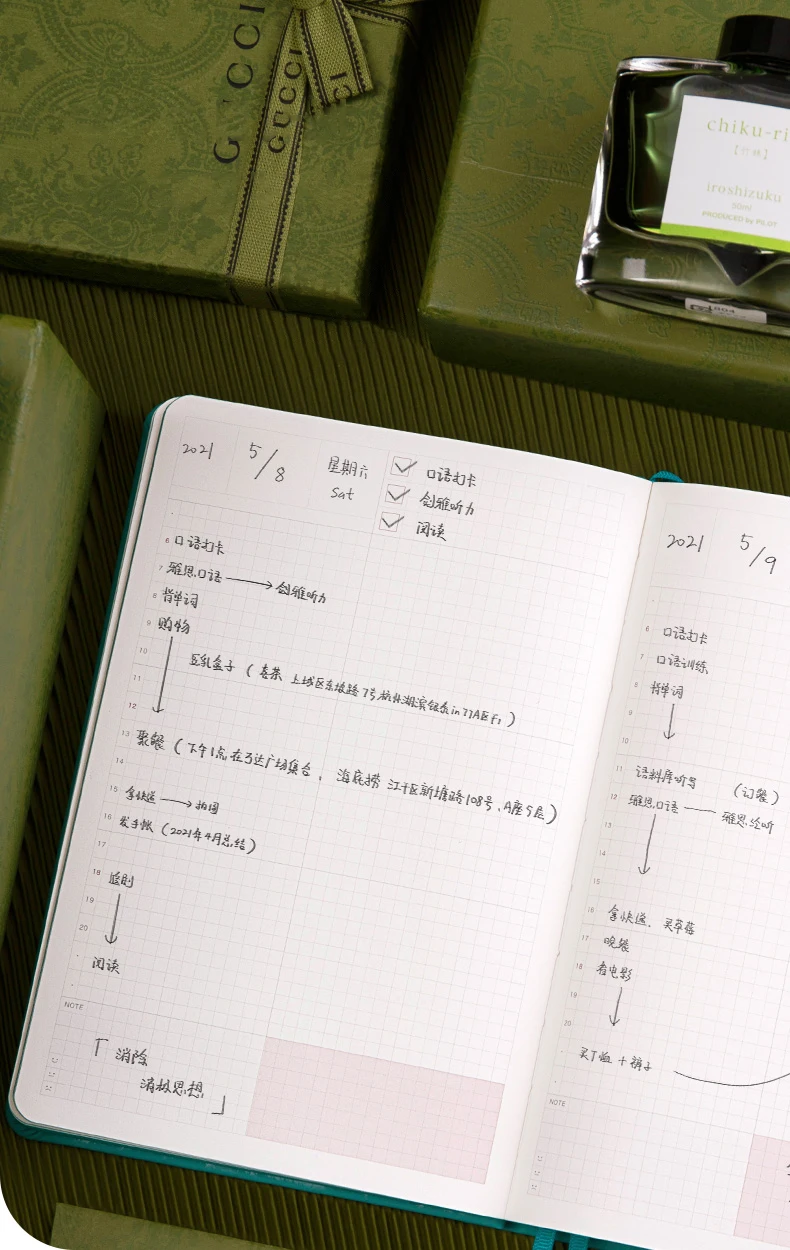 GUCCI
GUCCI
CI
chiku-ri
【竹林】
iroshizuku
50ml
PRODUCED by PILOT
2021 5/8 星期六
Sat
口语打卡
剑雅听力
阅读
6 口语打卡
7 雅思口语 → 剑雅听力
8 背单词
9 购物
10 豆乳盒子（ 上城区东坡路7号杭州湖滨银泰in77A区F1）
11
12
13 聚餐（下午1点在万达广场集合，海底捞 江干区新塘路108号、A座5层）
14
15 拿快递 → 拍图
16 发手帐（2021年4月总结）
17
18 追剧
19
20
阅读
NOTE
「消除
消极思想」
2021 5/9
6 口语打卡
7 口语训练
8 背单词
9
10
11 语料库听写 （订餐）
12 雅思口语 — 雅思听
13
14
15
16 拿快递、买草莓
17 晚餐
18 看电影
19
20
买T恤+裤子
NOTE